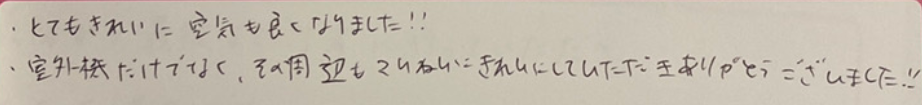 ・とてもきれいに空気も良くなりました!!
・室外機だけでなく、その周辺もていねいにきれいにしていただきありがとうございました!!